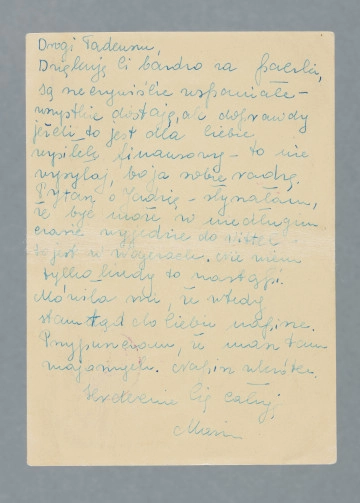 Drogi Tadeuszu,
Dziękuję Ci bardzo za paczki,
są rzeczywiście wspaniałe –
wszystkie dostaję, ale doprawdy
jeżeli to jest dla Ciebie
wysiłek finansowy – to nie
wysyłaj, bo ja sobie radzę.
Pytasz o – słyszałam,
że być może w niedługim
czasie wyjedzie do
to jest w Wogezach. Nie wiem
tylko kiedy to nastąpi.
Mówiła mi, że wtedy
stamtąd do Ciebie napisze.
Przypuszczam, że masz tam
znajomych. Napisz wkrótce.
Serdecznie Cię całuję